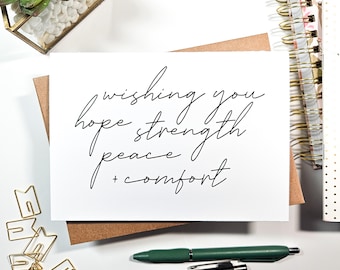 wishing you
hope strength
peace
+ comfort